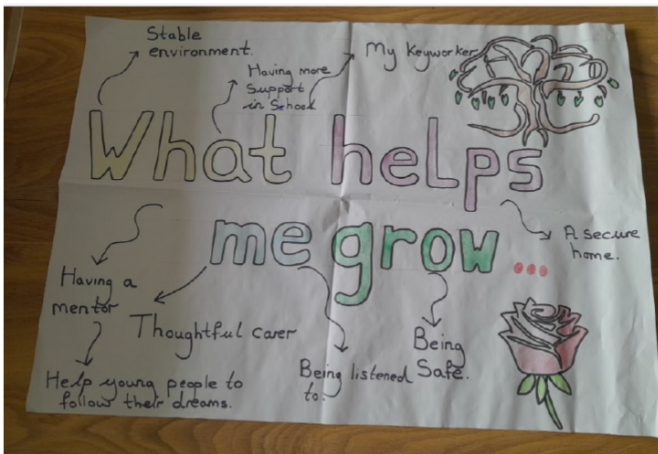 Stable
environment.
Having more
support
in School
My Keyworker
What helps
me grow...
A secure
home.
Having a
mentor
Help young people to
follow their dreams.
Thoughtful carer
Being listened
to.
Being
Safe.